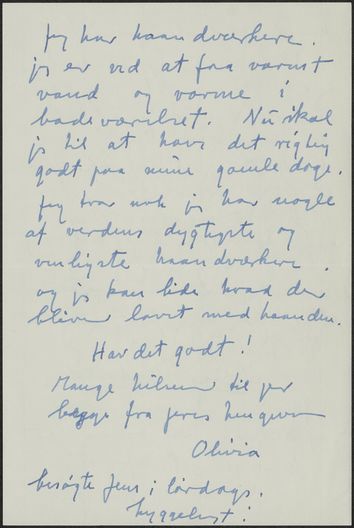 Jeg har haandværkere.
jeg er ved at faa varmt
vand og varme i
badeværelset. Nu skal
jeg til at have det rigtig
godt paa mine gamle dage.
Jeg tror nok jeg har nogle
af verdens dygtigste og
venligste haandværkere.
og jeg kan lide hvad der
bliver lavet med haanden.
Har det godt!
Mange hilsner til jer
begge fra jeres hengivne
Olivia
besøgte Jens i lørdags.
hyggeligt!